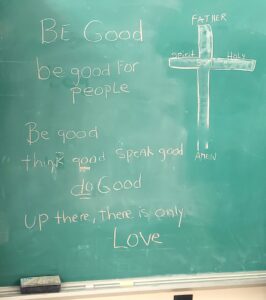 BE Good
be good For
PEOPLE
Be good
think good speak good
do Good
UP there, there is only
Love
FATHER
Spirit HOLY
AMEN